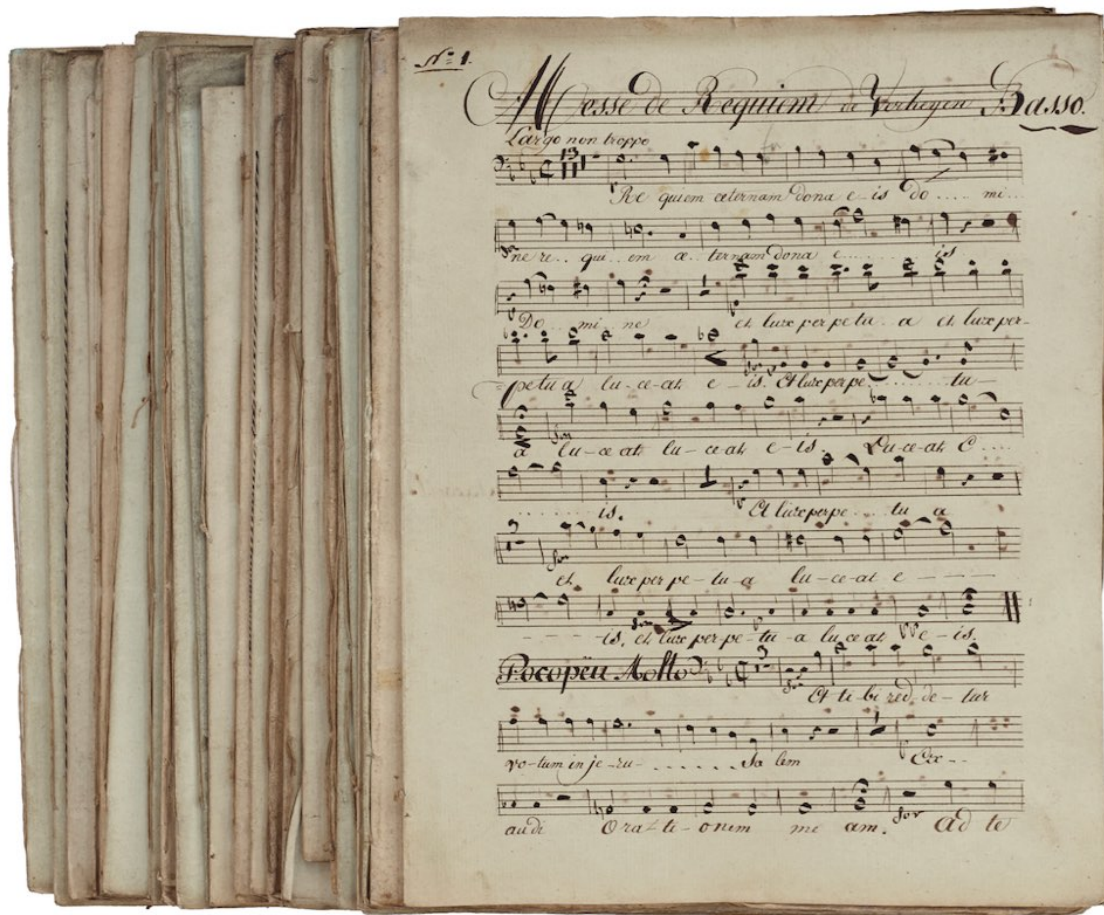 Nº 1.
Messe de Requiem de Verheyen Basso.
Largo non troppo
13
Re quiem æternam dona e-is do .... mi...
ne re.. qui.. em æ.. ternam dona e........ is
Do... mi.. ne et luxe perpetu.. a et luxe per-
=petu a lu-ce-at e-is. Et luxe perpe........ tu-
a lu-ce-at lu-ce-at e-is. Lu-ce-at E....
....... is. Et luxe perpe... tu a
3
et luxe per pe-tu-a lu-ce-at e ----
------ is, et luxe per-pe-tu-a lu ce at e-is.
Pocopëu Molto 3
for
Et ti-bi red-de-tur
vo-tum in je-ru- ...... Sa lem Ex--
audi Ora-ti-onem me am. for Ad te